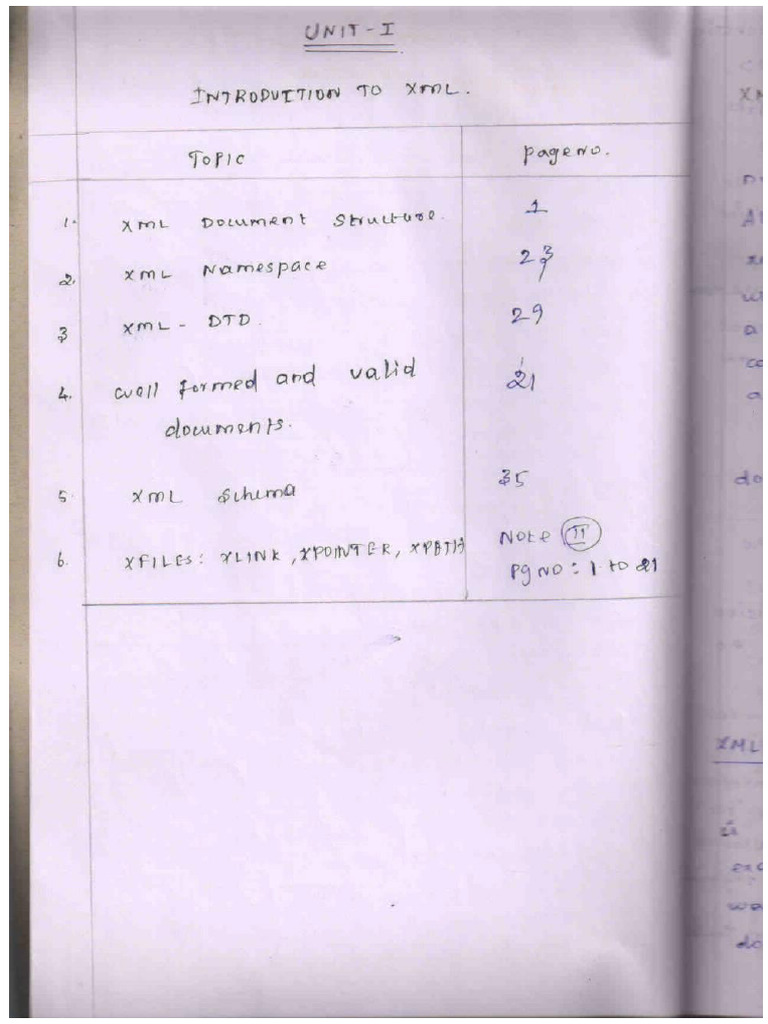 UNIT-I
INTRODUCTION TO XML.
TOPIC pageno.
1. XML Document Structure. 1
2. XML Namespace 23
3 XML - DTD. 29
4. Well formed and valid 21
documents.
5. XML Schema 35
6. XFILES: XLINK, XPOINTER, XPATH Note II
Pg NO: 1 to 21
XML
do
is
we
do